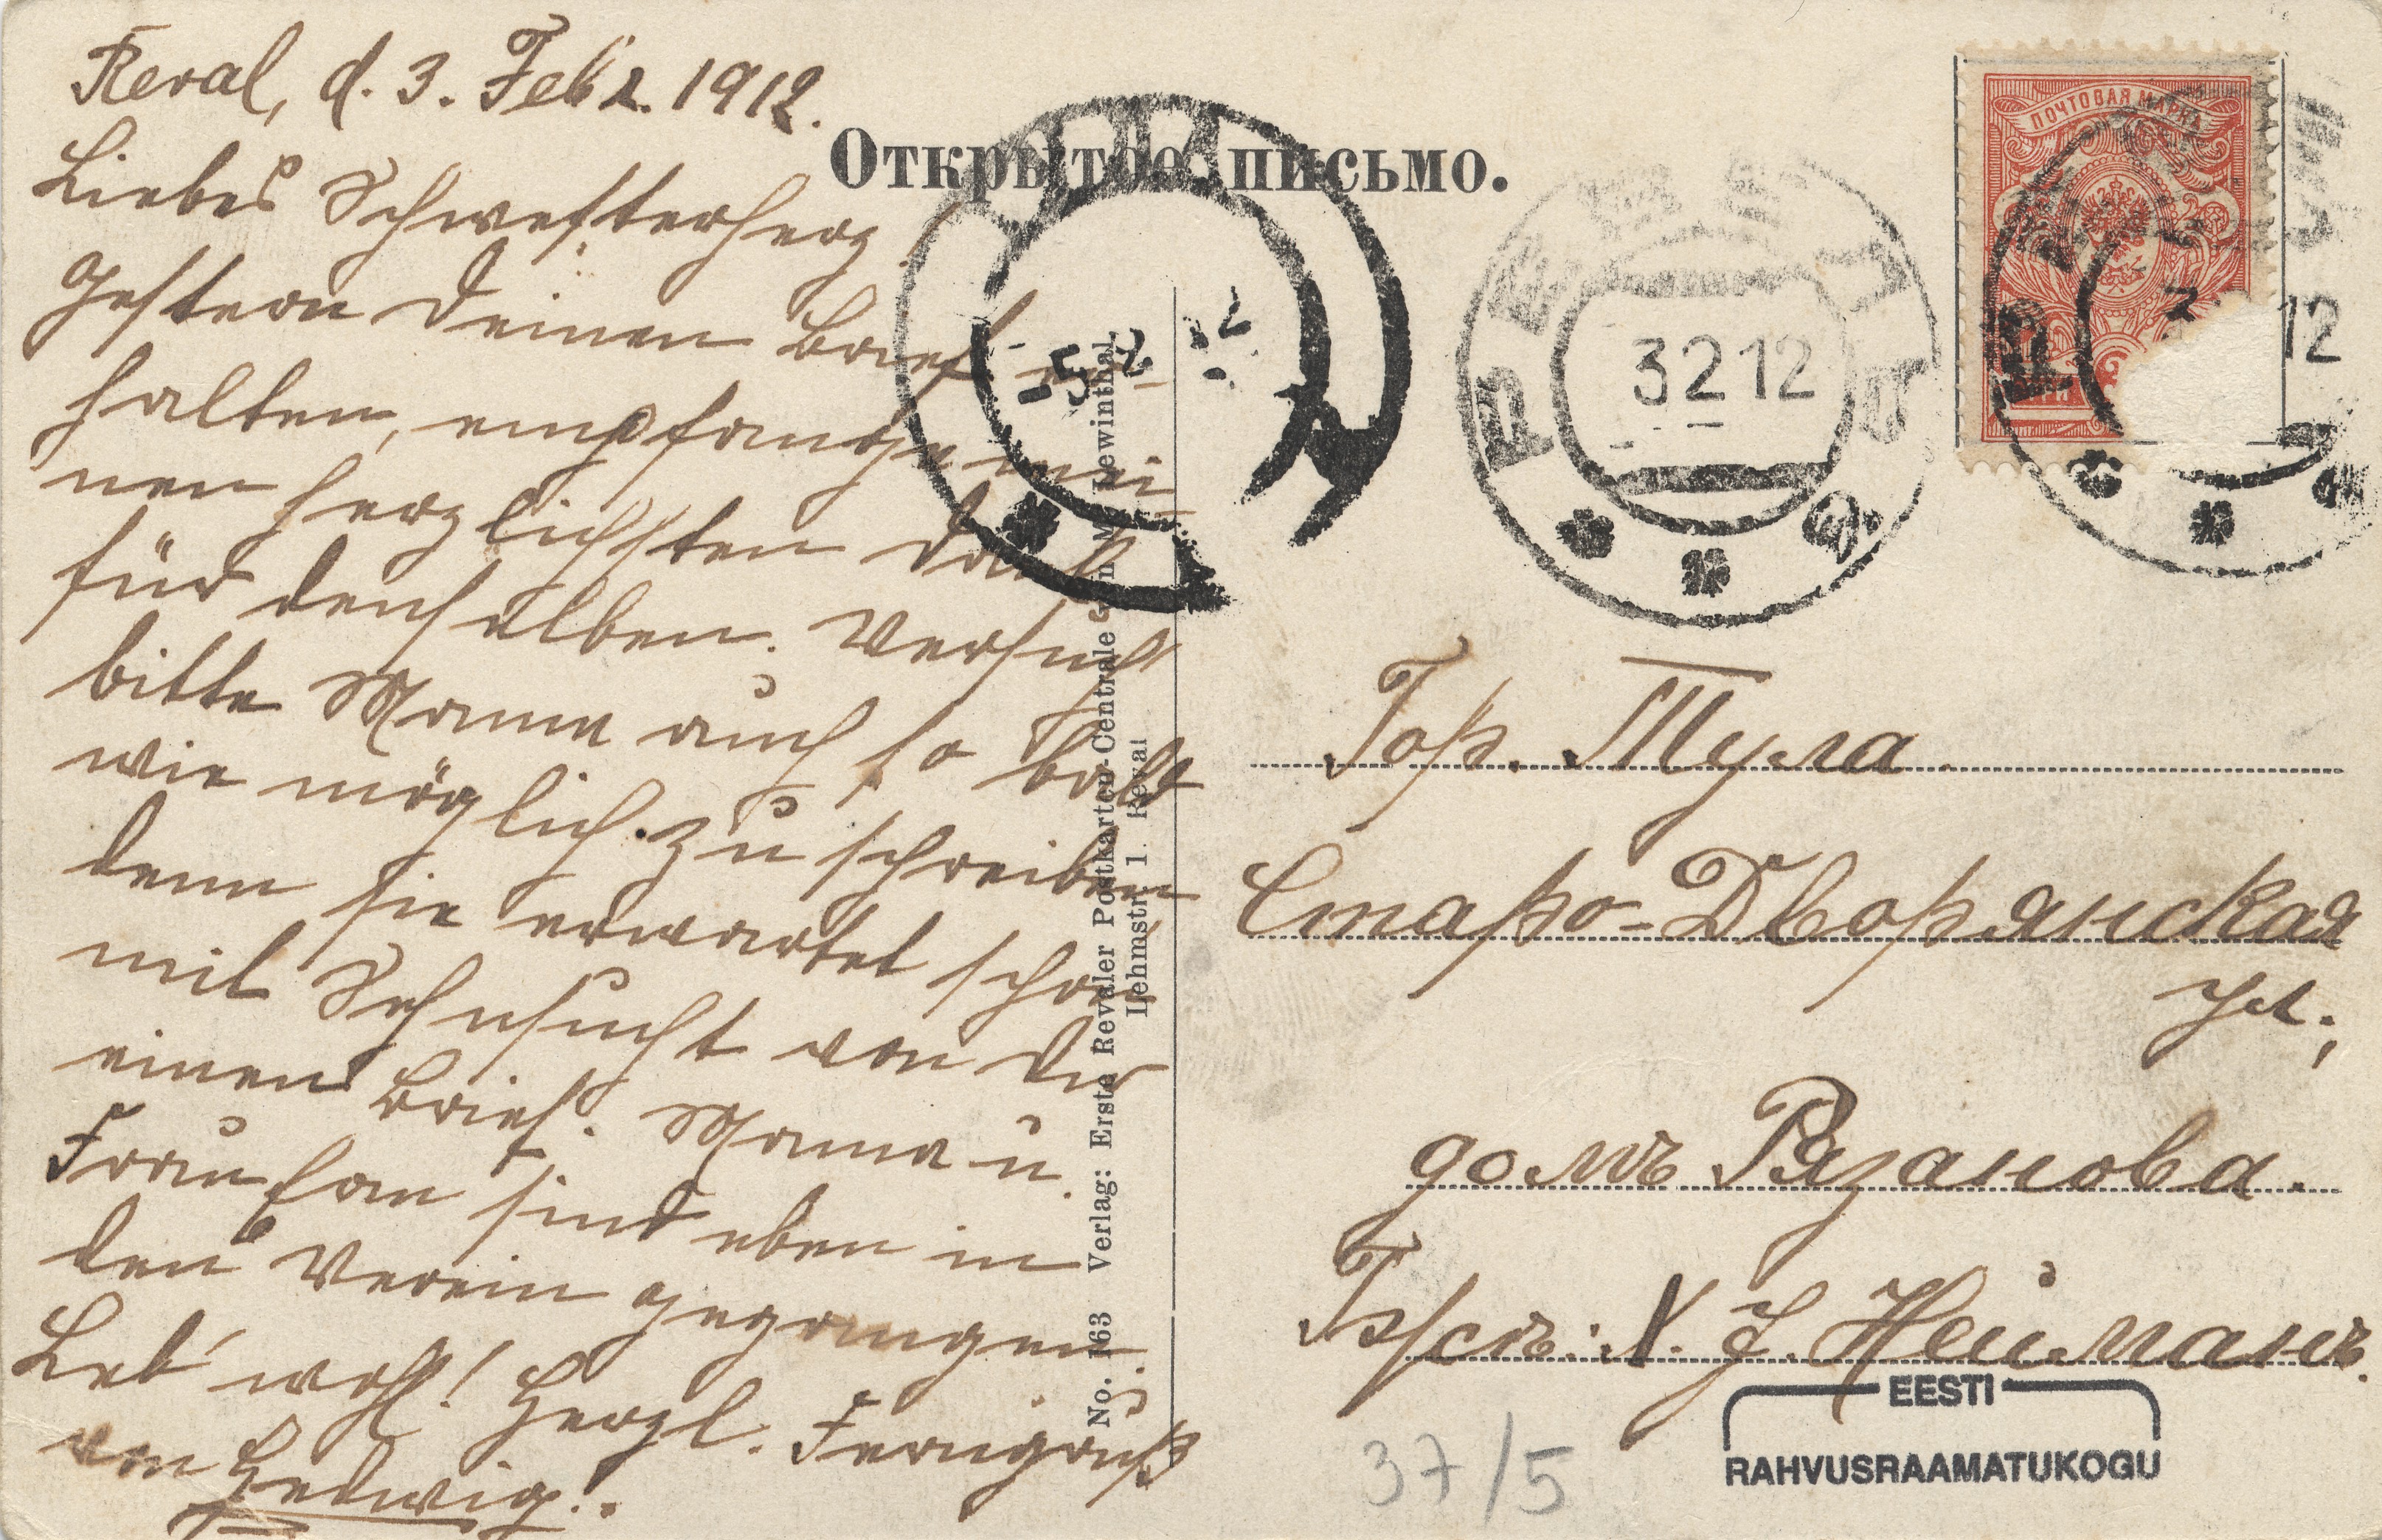 Reval, d. 3. Febr. 1912.
Liebes Schwesterherz!
Gestern Deinen Brief er-
halten, empfange mei-
nen herzlichsten Dank
für denselben. Versuch
bitte Mama auch so bald
wie möglich zu schreiben,
denn sie erwartet schon
mit Sehnsucht von Dir
einen Brief. Mama u.
Frau sind eben in
den Verein gegangen.
Leb' wohl! Herzl. Ferngruß
von Hedwig!
Открытое письмо.
No. 163 Verlag: Erste Revaler Postkarten-Centrale Lewinthal
Lehmstr. 1. Reval
-5 2 12
3 2 12
ПОЧТОВАЯ МАРКА
12
Гор. Тула
Старо-Дворянская
ул.,
домъ Рязанова.
Х. Нейманъ.
37/5
EESTI
RAHVUSRAAMATUKOGU